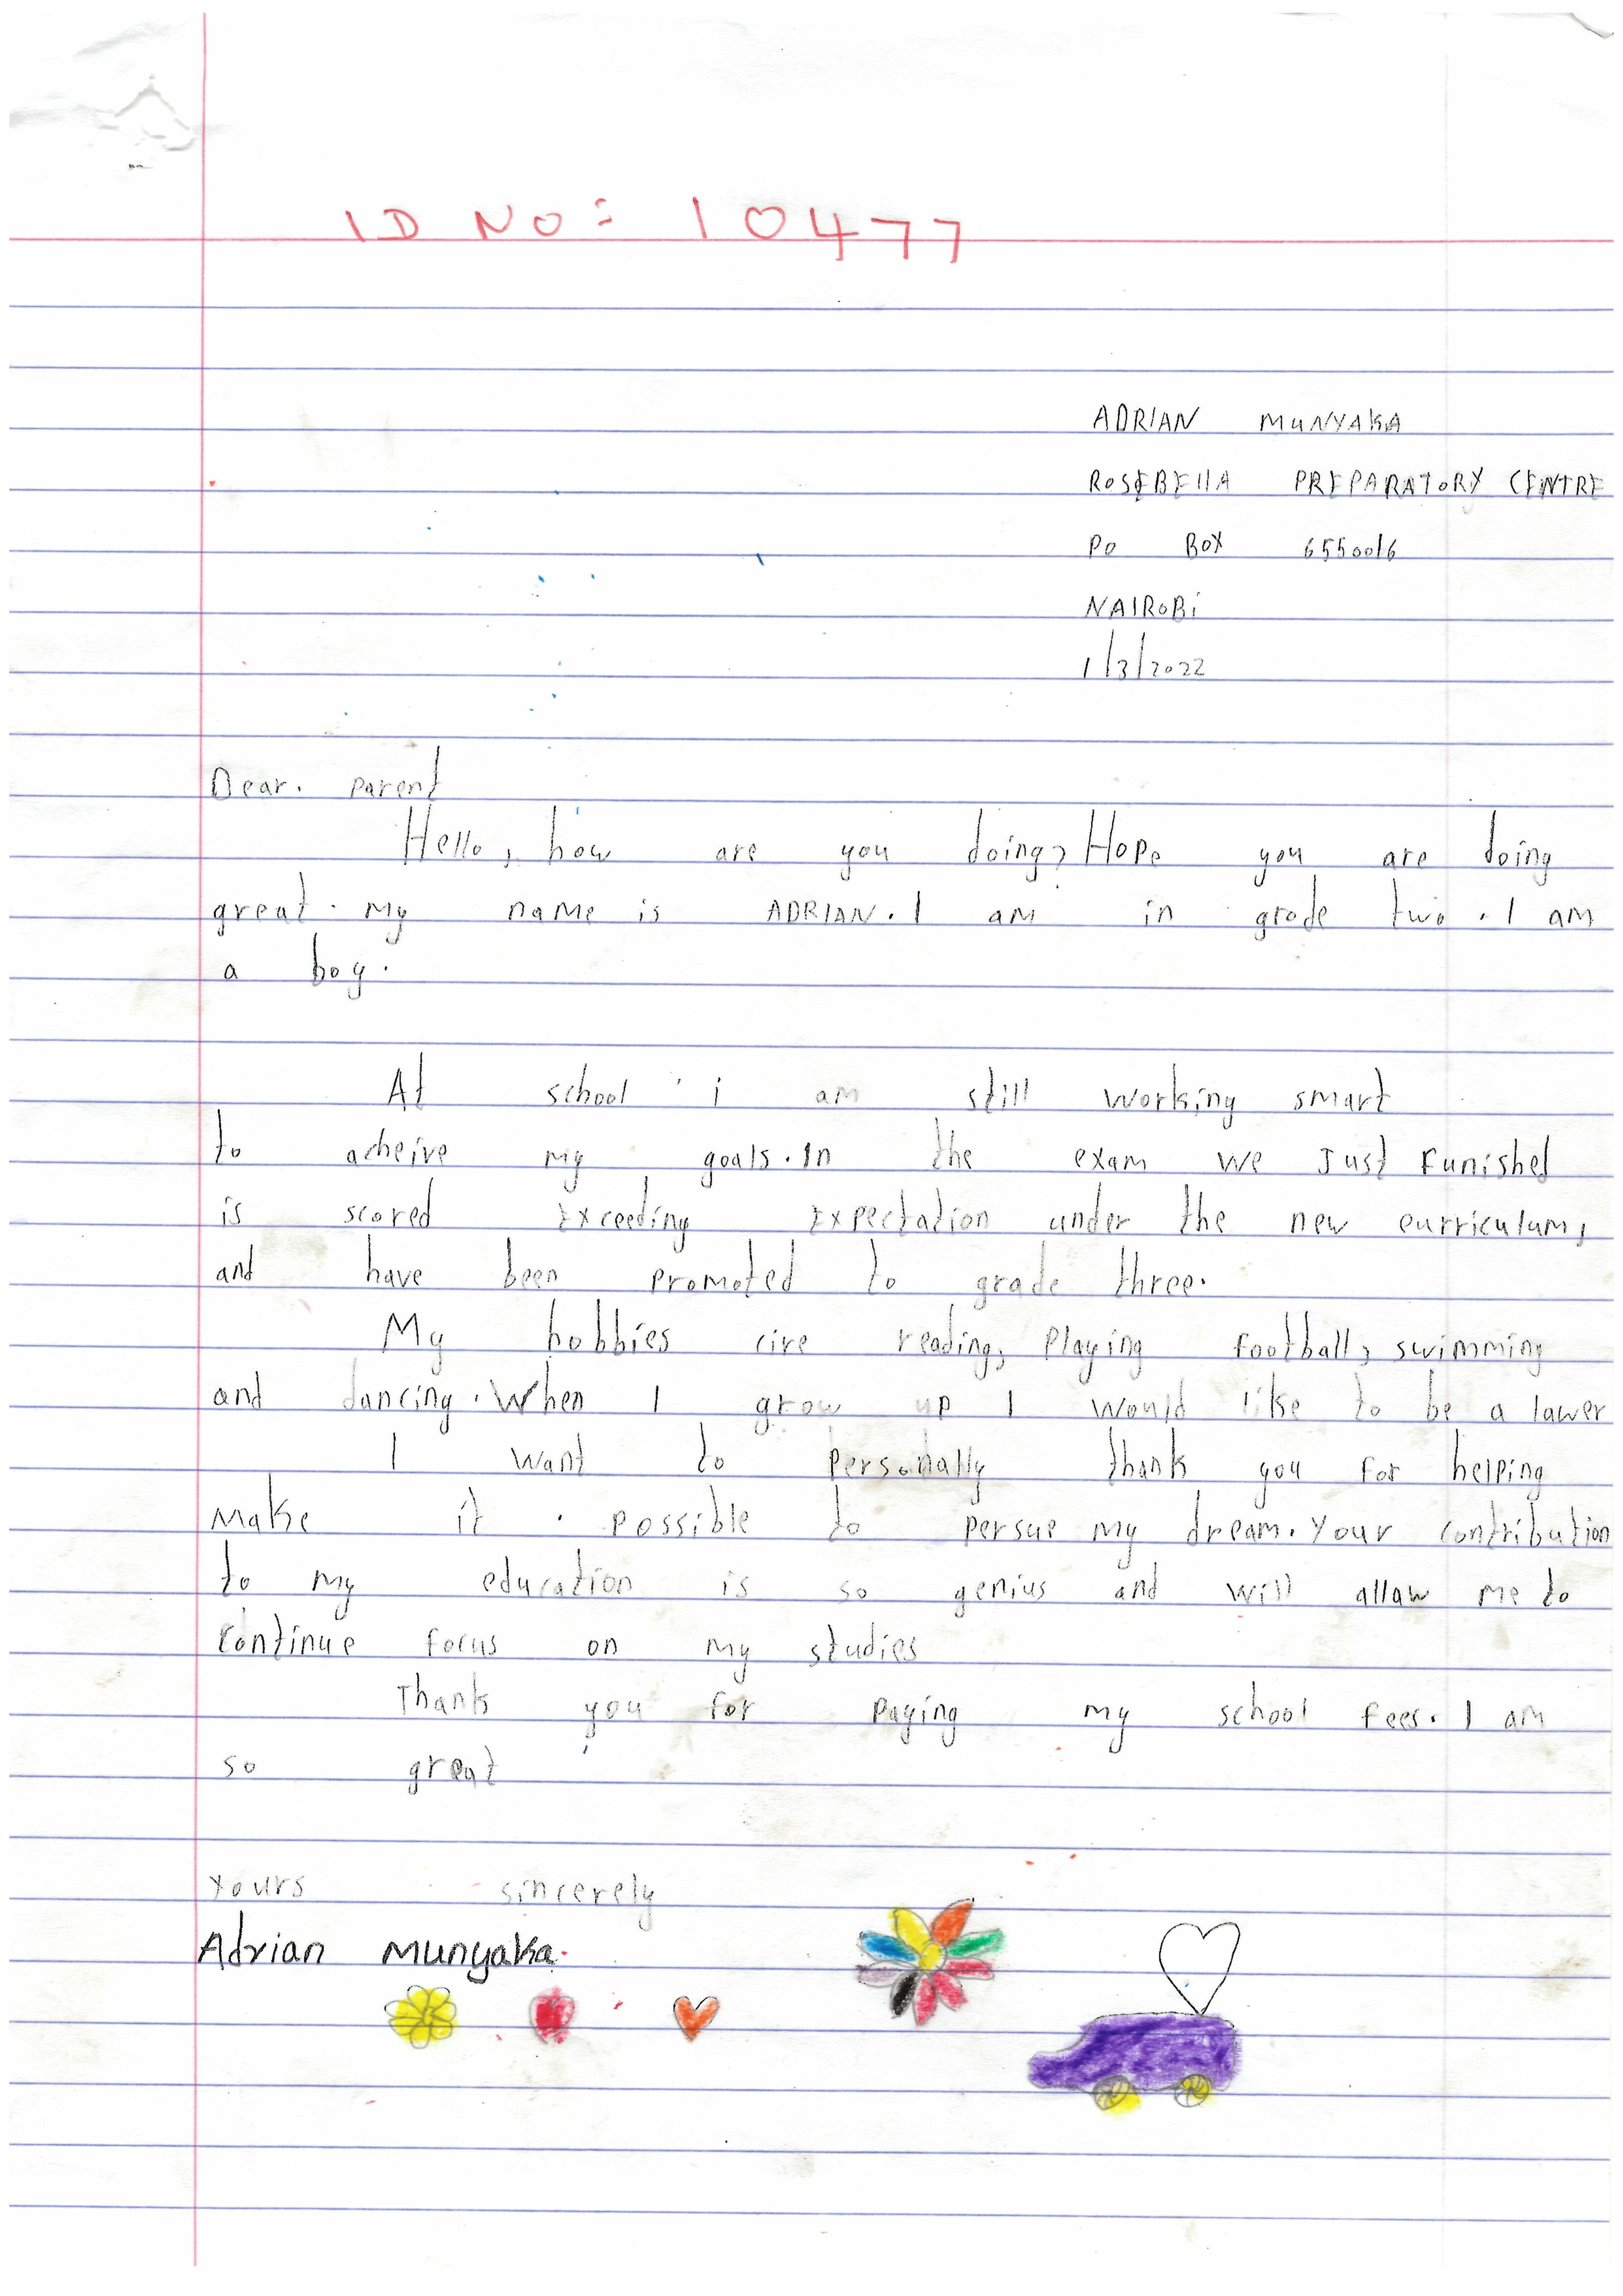 ID NO: 10477
ADRIAN MUNYAKA
ROSEBELLA PREPARATORY CENTRE
PO BOX 6550016
NAIROBI
1/3/2022
Dear. parent
Hello, how are you doing, Hope you are doing
great. my name is ADRIAN. I am in grade two. I am
a boy.
At school i am still working smart
to acheive my goals. In the exam we Just Funished
is scored Exceeding Expectation under the new curriculum,
and have been promoted to grade three.
My hobbies are reading, Playing football, swimming
and dancing. When I grow up I would like to be a lawer
I want to personally thank you for helping
make it possible to persue my dream. Your contribution
to my education is so genius and will allaw me to
continue focus on my studies
Thank you for paying my school fees. I am
so great
Yours sincerely
Adrian Munyaka.